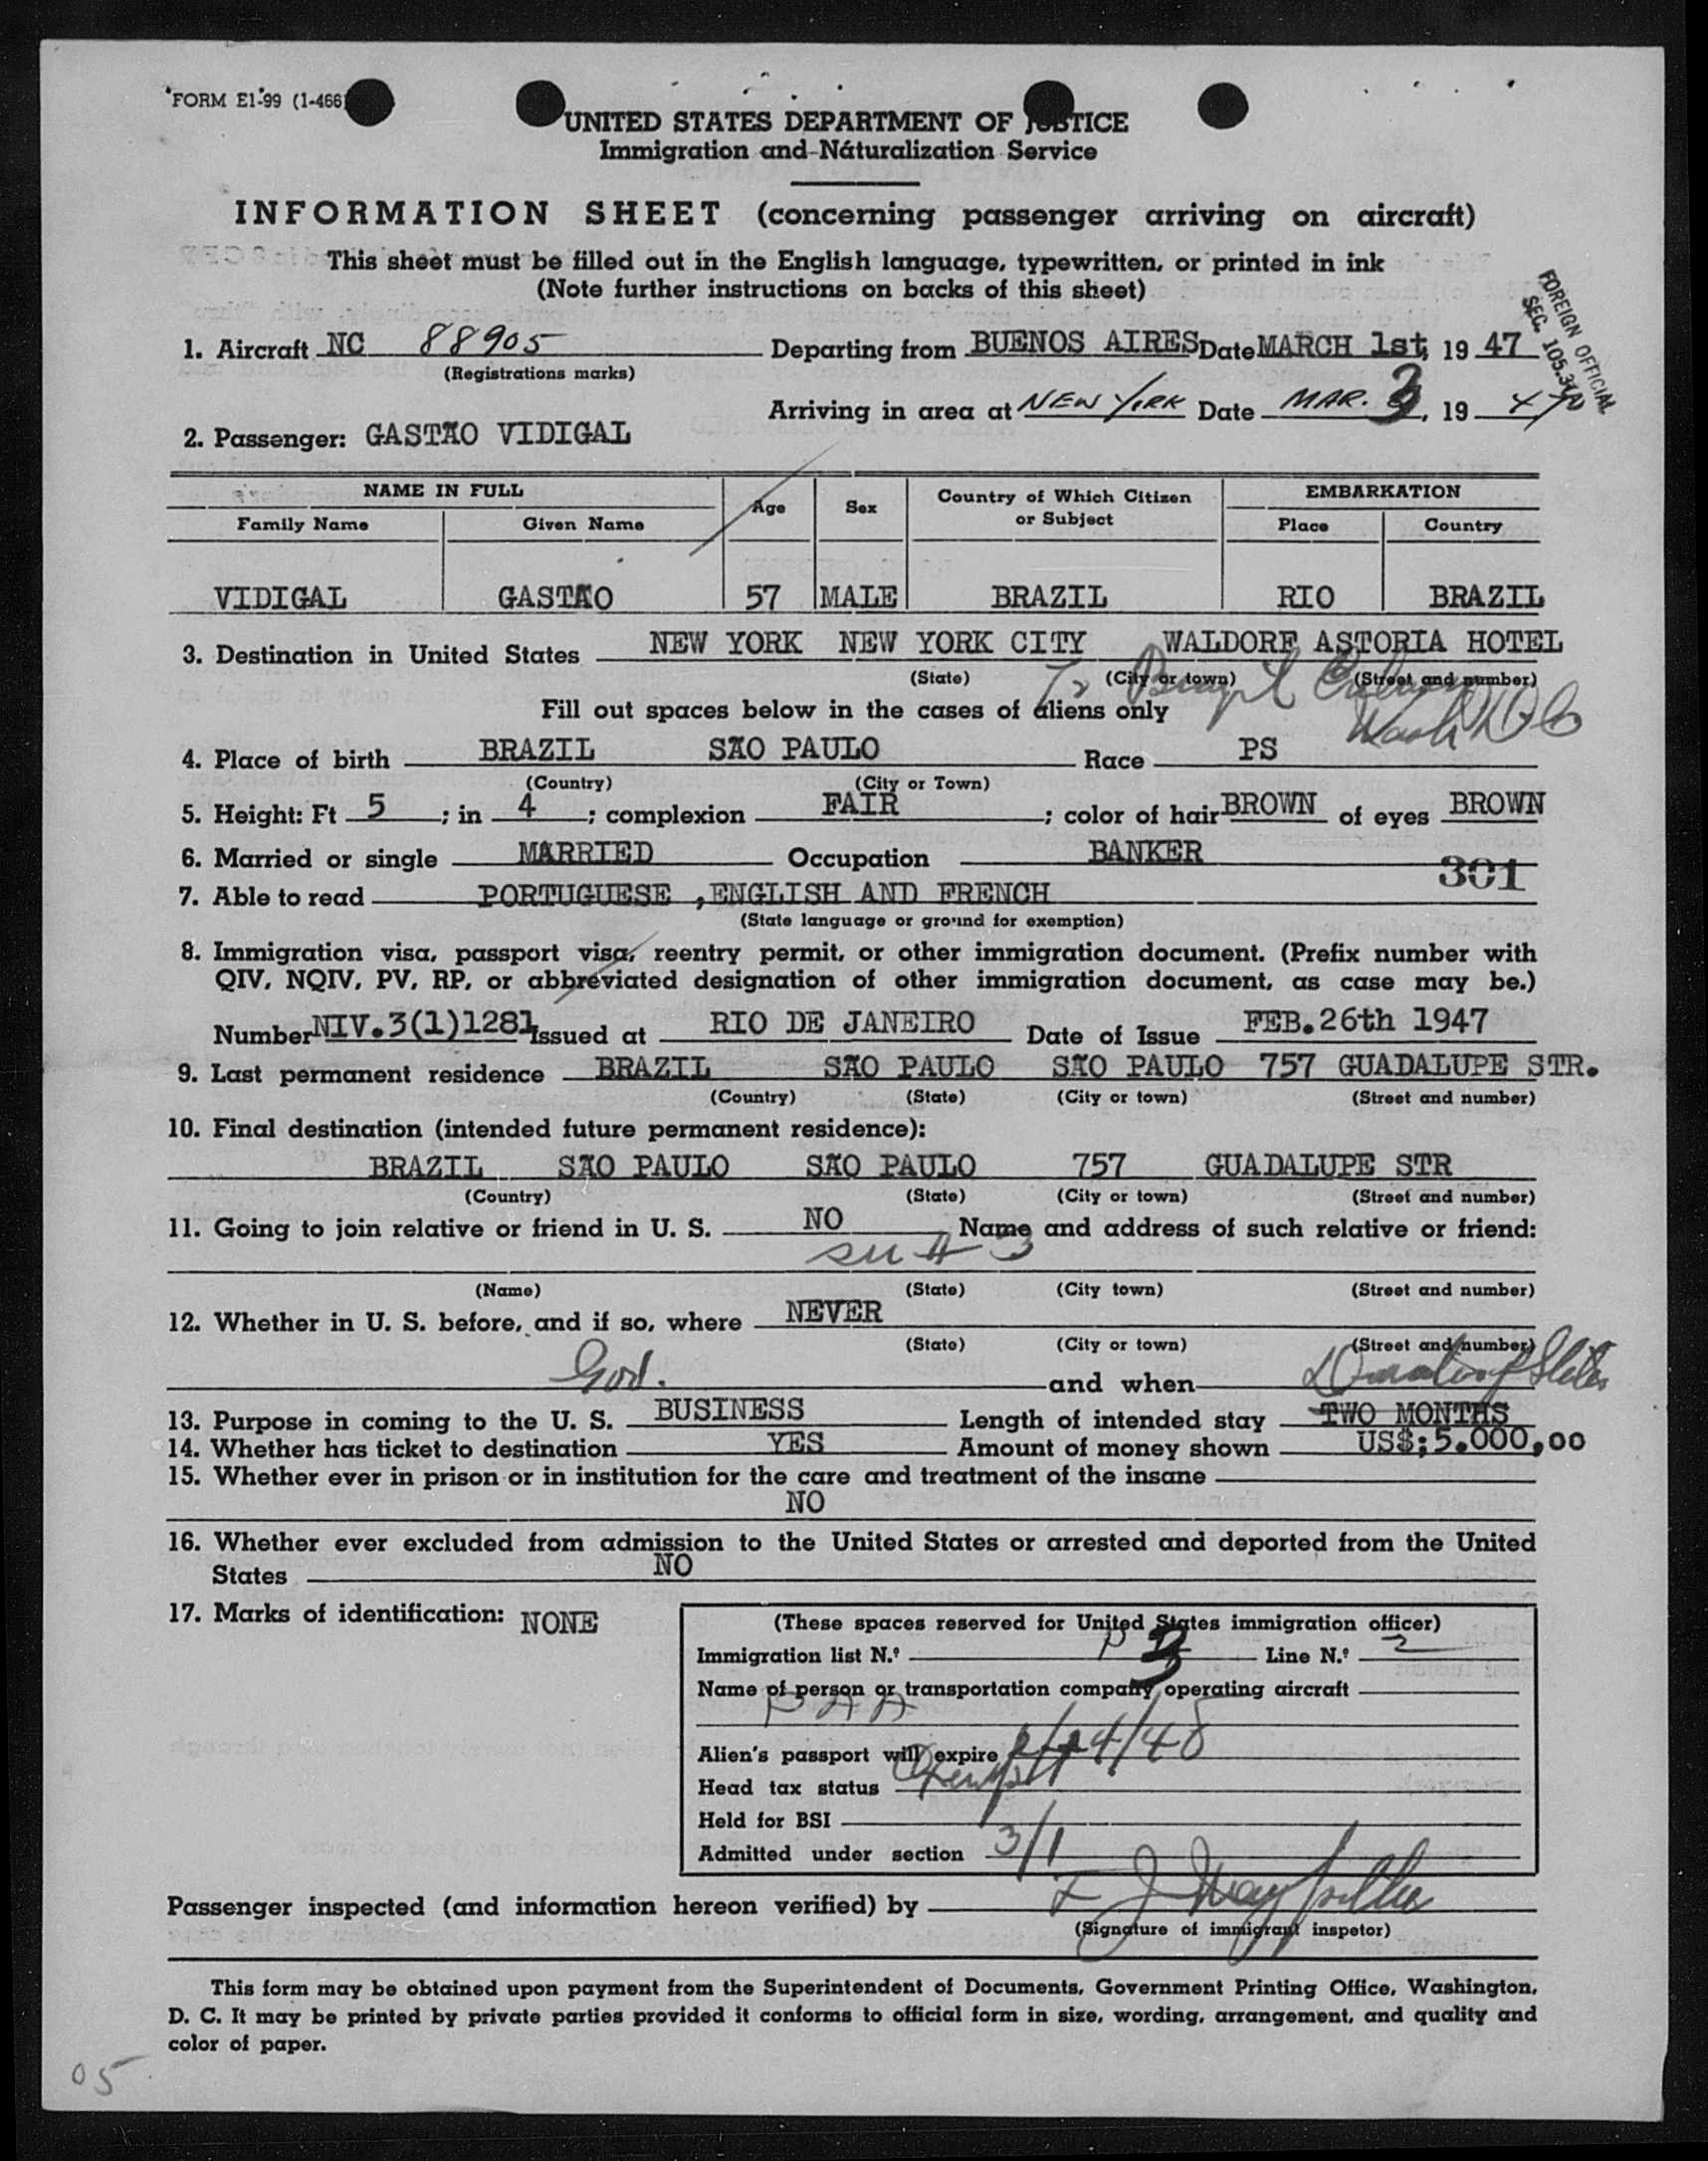 FORM E1-99 (1-466)
UNITED STATES DEPARTMENT OF JUSTICE
Immigration and Naturalization Service
INFORMATION SHEET (concerning passenger arriving on aircraft)
This sheet must be filled out in the English language, typewritten, or printed in ink
(Note further instructions on backs of this sheet)
FOREIGN OFFICIAL
SEC. 105.3
1. Aircraft NC 88905 Departing from BUENOS AIRES Date MARCH 1st, 19 47
(Registrations marks)
Arriving in area at NEW YORK Date MAR. 3, 19 47
2. Passenger: GASTÃO VIDIGAL
NAME IN FULL Age Sex Country of Which Citizen or Subject EMBARKATION
Family Name Given Name Place Country
VIDIGAL GASTÃO 57 MALE BRAZIL RIO BRAZIL
3. Destination in United States NEW YORK NEW YORK CITY WALDORF ASTORIA HOTEL
(State) (City or town) (Street and number)
Wash DC
Fill out spaces below in the cases of aliens only
4. Place of birth BRAZIL SÃO PAULO Race PS
(Country) (City or Town)
5. Height: Ft 5 ; in 4 ; complexion FAIR ; color of hair BROWN of eyes BROWN
6. Married or single MARRIED Occupation BANKER
301
7. Able to read PORTUGUESE ,ENGLISH AND FRENCH
(State language or ground for exemption)
8. Immigration visa, passport visa, reentry permit, or other immigration document. (Prefix number with
QIV, NQIV, PV, RP, or abbreviated designation of other immigration document, as case may be.)
Number NIV.3(1)1281 Issued at RIO DE JANEIRO Date of Issue FEB.26th 1947
9. Last permanent residence BRAZIL SÃO PAULO SÃO PAULO 757 GUADALUPE STR.
(Country) (State) (City or town) (Street and number)
10. Final destination (intended future permanent residence):
BRAZIL SÃO PAULO SÃO PAULO 757 GUADALUPE STR
(Country) (State) (City or town) (Street and number)
11. Going to join relative or friend in U. S. NO Name and address of such relative or friend:
# 3
(Name) (State) (City town) (Street and number)
12. Whether in U. S. before, and if so, where NEVER
(State) (City or town) (Street and number)
Gov. and when Duration of Status
13. Purpose in coming to the U. S. BUSINESS Length of intended stay TWO MONTHS
14. Whether has ticket to destination YES Amount of money shown US$;5.000,00
15. Whether ever in prison or in institution for the care and treatment of the insane
NO
16. Whether ever excluded from admission to the United States or arrested and deported from the United
States NO
17. Marks of identification: NONE
(These spaces reserved for United States immigration officer)
Immigration list N.º P 3 Line N.º 2
Name of person or transportation company operating aircraft
PAA
Alien's passport will expire 2/24/48
Head tax status Exempt
Held for BSI
Admitted under section 3/1
Passenger inspected (and information hereon verified) by
(Signature of immigrant inspetor)
This form may be obtained upon payment from the Superintendent of Documents, Government Printing Office, Washington,
D. C. It may be printed by private parties provided it conforms to official form in size, wording, arrangement, and quality and
color of paper.
05